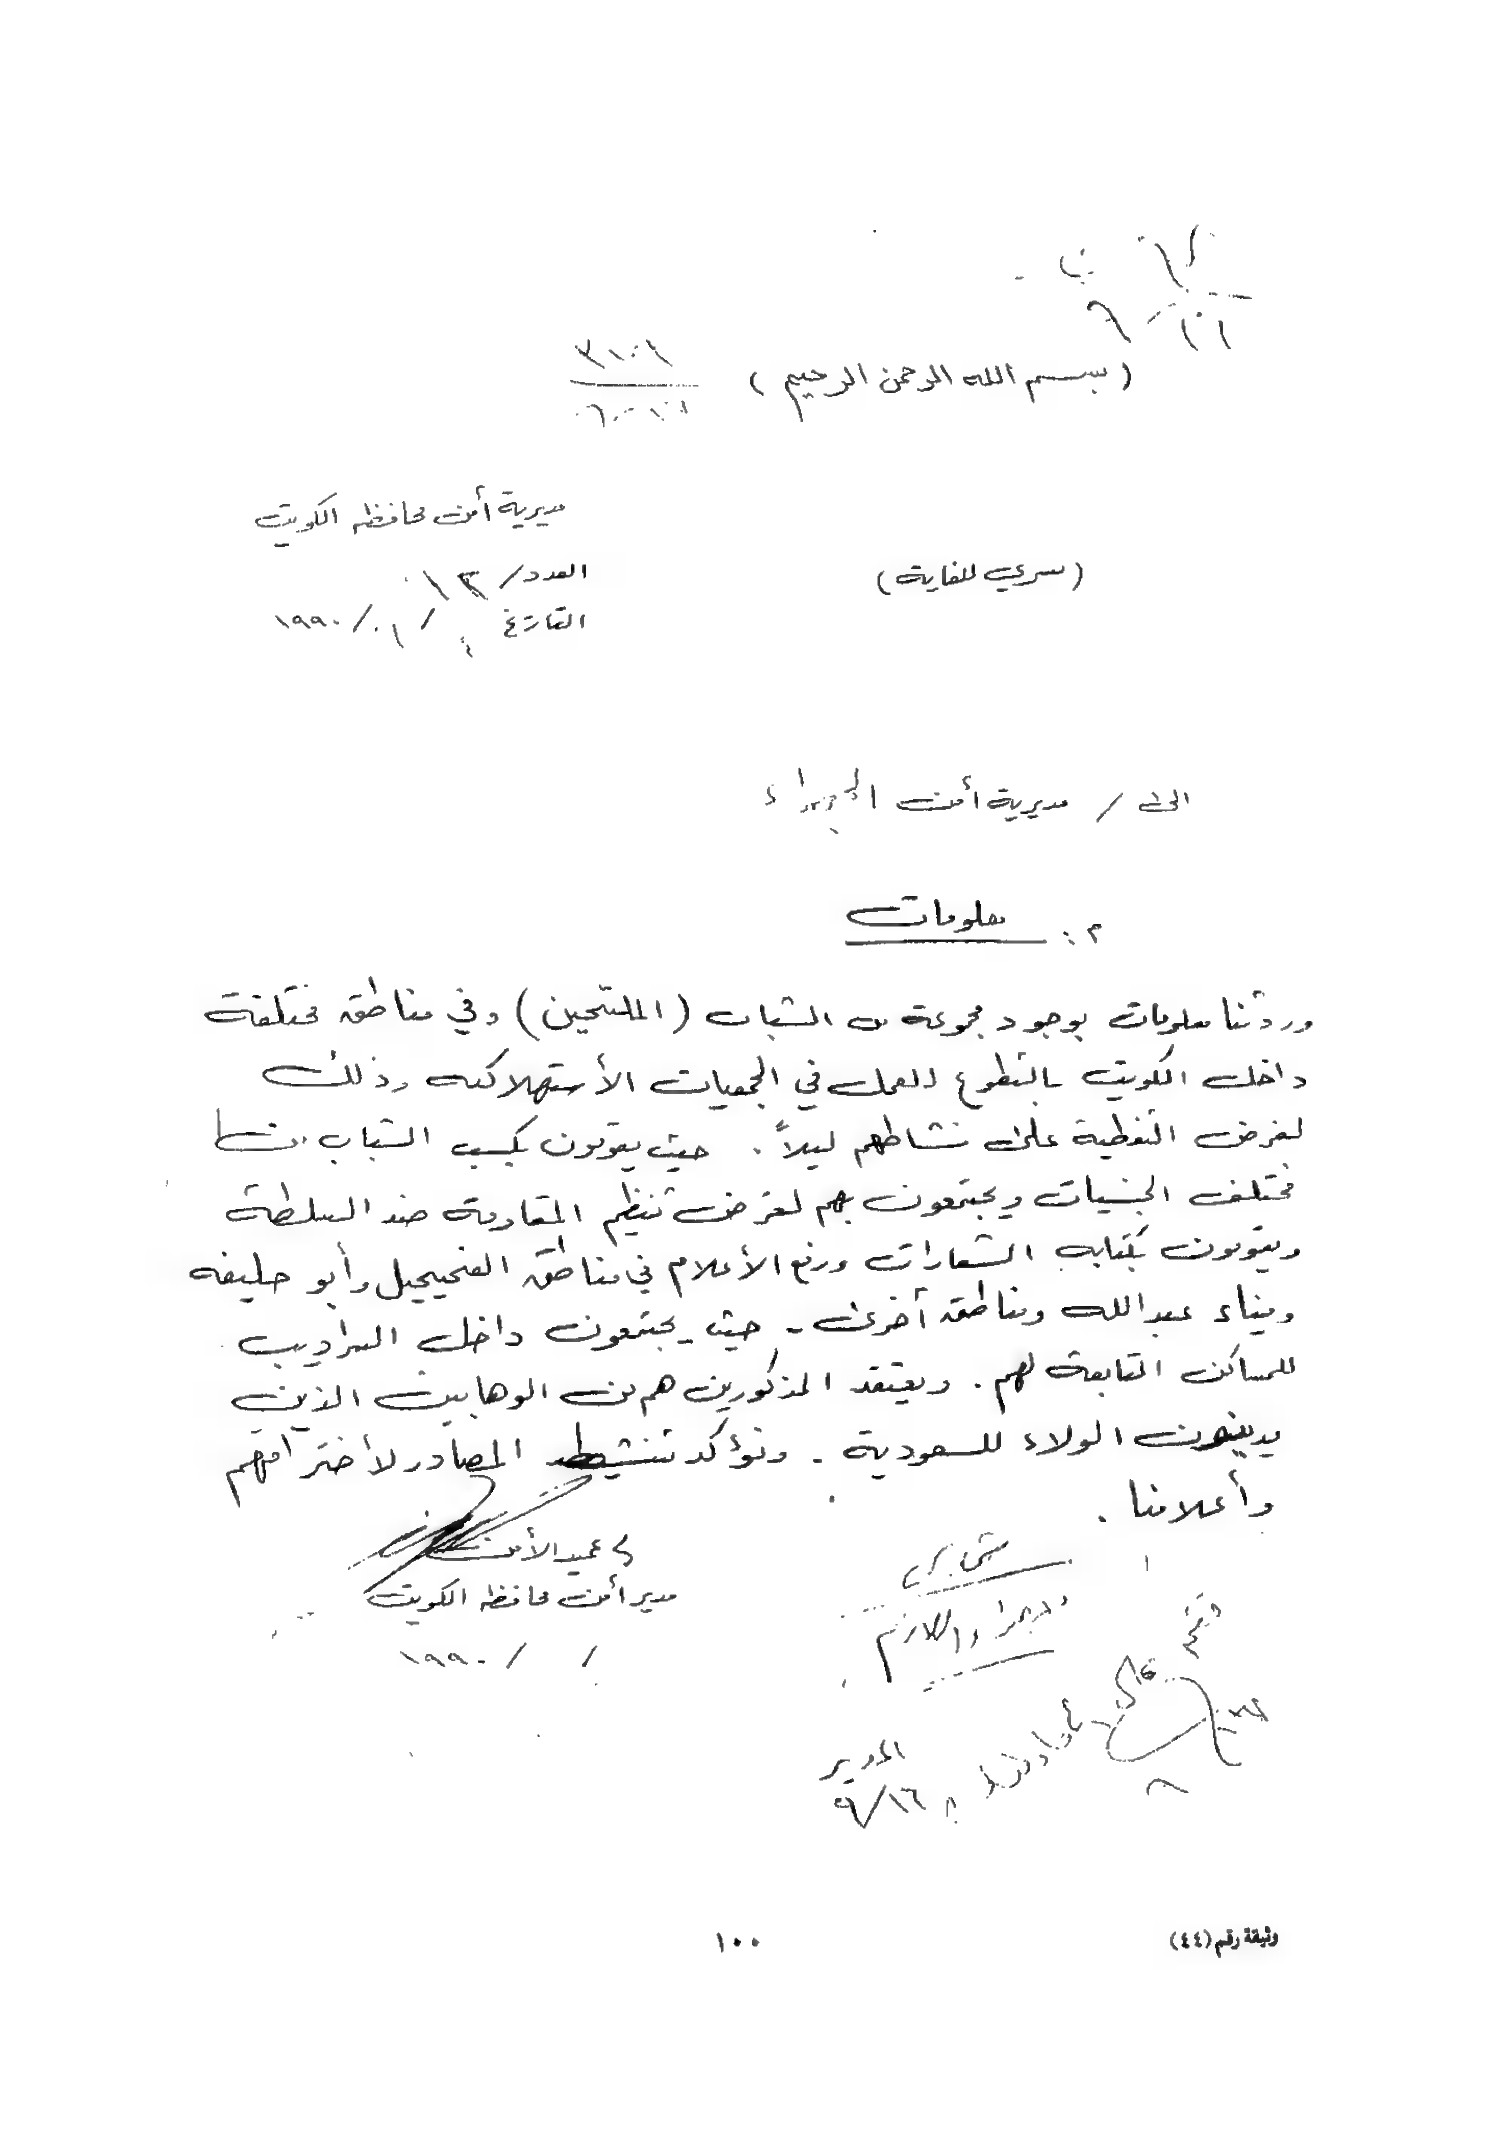 (بسم الله الرحمن الرحيم)
مديرية أمن محافظه الكويت
(سري للغاية)
العدد/
التاريخ / / ١٩٩٠
الى / مديرية أمن الجهراء
م: معلومات
وردتنا معلومات بوجود مجموعة من الشباب (الملتحين) وفي مناطق مختلفة
داخل الكويت بالتطوع للعمل في الجمعيات الأستهلاكيه وذلك
لغرض التغطية على نشاطهم ليلاً. حيث يقومون بكسب الشباب من
مختلف الجنسيات ويجتمعون بهم لغرض تنظيم المقاومة ضد السلطة
ويقومون بكتابه الشعارات ورفع الأعلام في مناطق الفحيحيل وأبو حليفه
وميناء عبدالله ومناطق أخرى - حيث يجتمعون داخل السراديب
للمساكن التابعة لهم. ويعتقد المذكورين هم من الوهابين الذين
يدينون الولاء للسعودية. ونؤكد تنشيط المصادر لأختراقهم
وأعلامنا.
عميد الأمن
مدير أمن محافظه الكويت
/ / ١٩٩٠
المدير
٩/١٦
وثيقة رقم (٤٤)
١٠٠